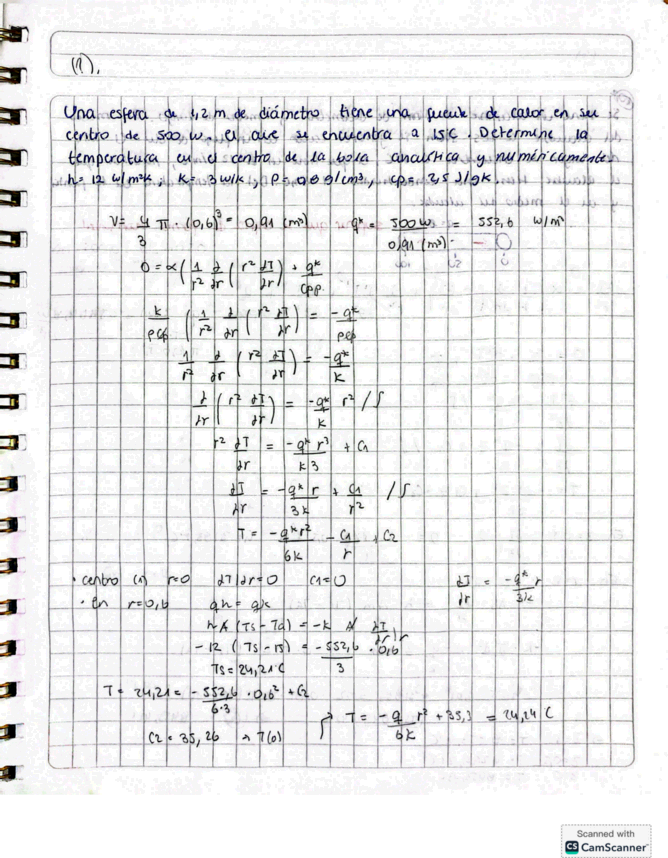 (1).
Una esfera de 1,2 m de diámetro tiene una fuente de calor en su
centro de 500 w. el que se encuentra a 15°C. Determine la
temperatura en el centro de la bola analítica y numéricamente
h= 12 w/m²k, K= 3 w/k, P= 0,8 g/cm³, cp= 2,5 J/gk.
V= 4/3 π · (0,6)³ = 0,91 (m³)   q* = 500 w / 0,91 (m³) = 552,6 w/m³
0 = α (1/r² d/dr (r² dT/dr) + q*/cpρ
k/ρcp (1/r² d/dr (r² dT/dr) = -q*/ρcp
1/r² d/dr (r² dT/dr) = -q*/k
d/dr (r² dT/dr) = -q*/k r² /∫
r² dT/dr = -q* r³/k3 + C1
dT/dr = -q* r/3k + C1/r² /∫
T = -q* r²/6k - C1/r + C2
· centro (1) r=0 dT/dr=0 C1=0   dT/dr = -q* r/3k
· en r=0,6 qh = qk
h A (Ts - Ta) = -k A dT/dr|r
-12 (Ts - 15) = -552,6/3 · 0,6
Ts = 24,21°C
T = 24,21 = -552,6/6·3 · 0,6² + C2
C2 = 35,26 → T(0)   T = -q/6k r² + 35,3 = 24,24 C
Scanned with
CS CamScanner